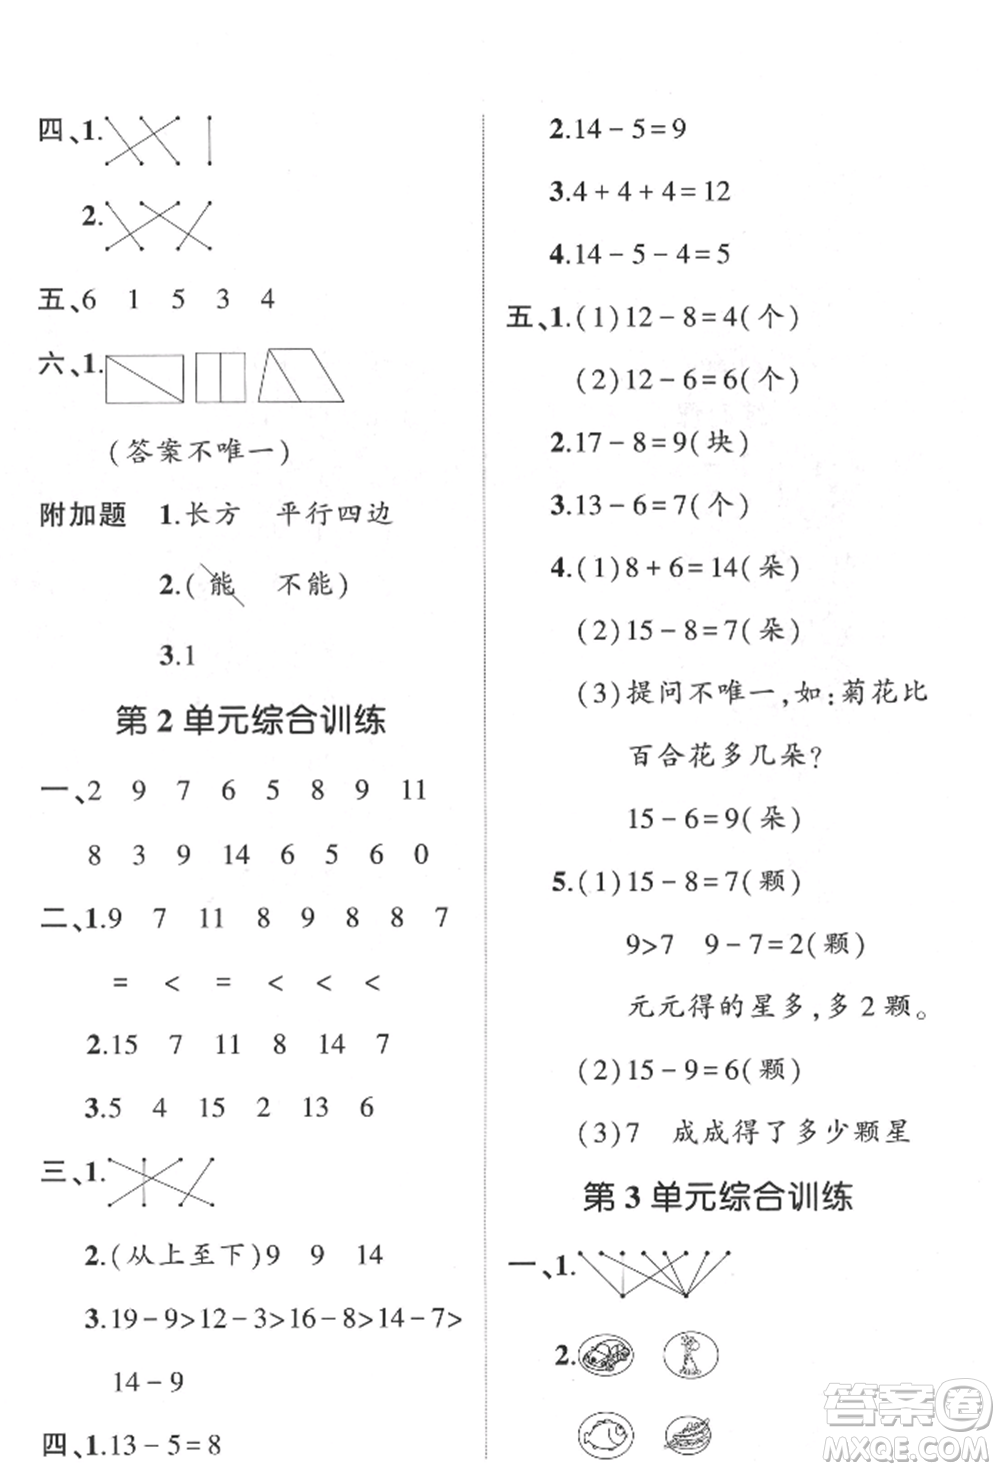 四、1.
2.
五、6 1 5 3 4
六、1.
(答案不唯一)
附加题 1.长方 平行四边
2.(能 不能)
3.1
第2单元综合训练
一、2 9 7 6 5 8 9 11
8 3 9 14 6 5 6 0
二、1.9 7 11 8 9 8 8 7
= < = < < <
2.15 7 11 8 14 7
3.5 4 15 2 13 6
三、1.
2.(从上至下)9 9 14
3.19-9>12-3>16-8>14-7>
14-9
四、1.13-5=8
2.14-5=9
3.4+4+4=12
4.14-5-4=5
五、1.(1)12-8=4(个)
(2)12-6=6(个)
2.17-8=9(块)
3.13-6=7(个)
4.(1)8+6=14(朵)
(2)15-8=7(朵)
(3)提问不唯一,如:菊花比
百合花多几朵?
15-6=9(朵)
5.(1)15-8=7(颗)
9>7 9-7=2(颗)
元元得的星多,多2颗。
(2)15-9=6(颗)
(3)7 成成得了多少颗星
第3单元综合训练
一、1.
2.
答案圈
MXQE.COM